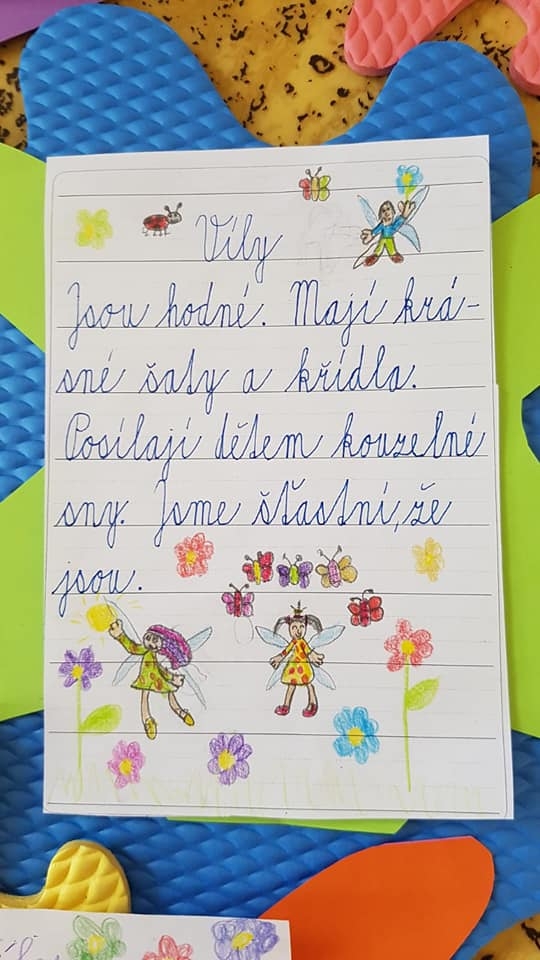 Víly
Jsou hodné. Mají krá-
sné šaty a křídla.
Posílají dětem kouzelné
sny. Jsme šťastní, že
jsou.